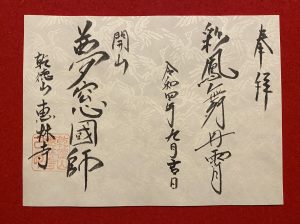 奉拝
彩鳳舞丹霄
令和四年九月吉日
開山
夢窓國師
乾徳山 恵林寺